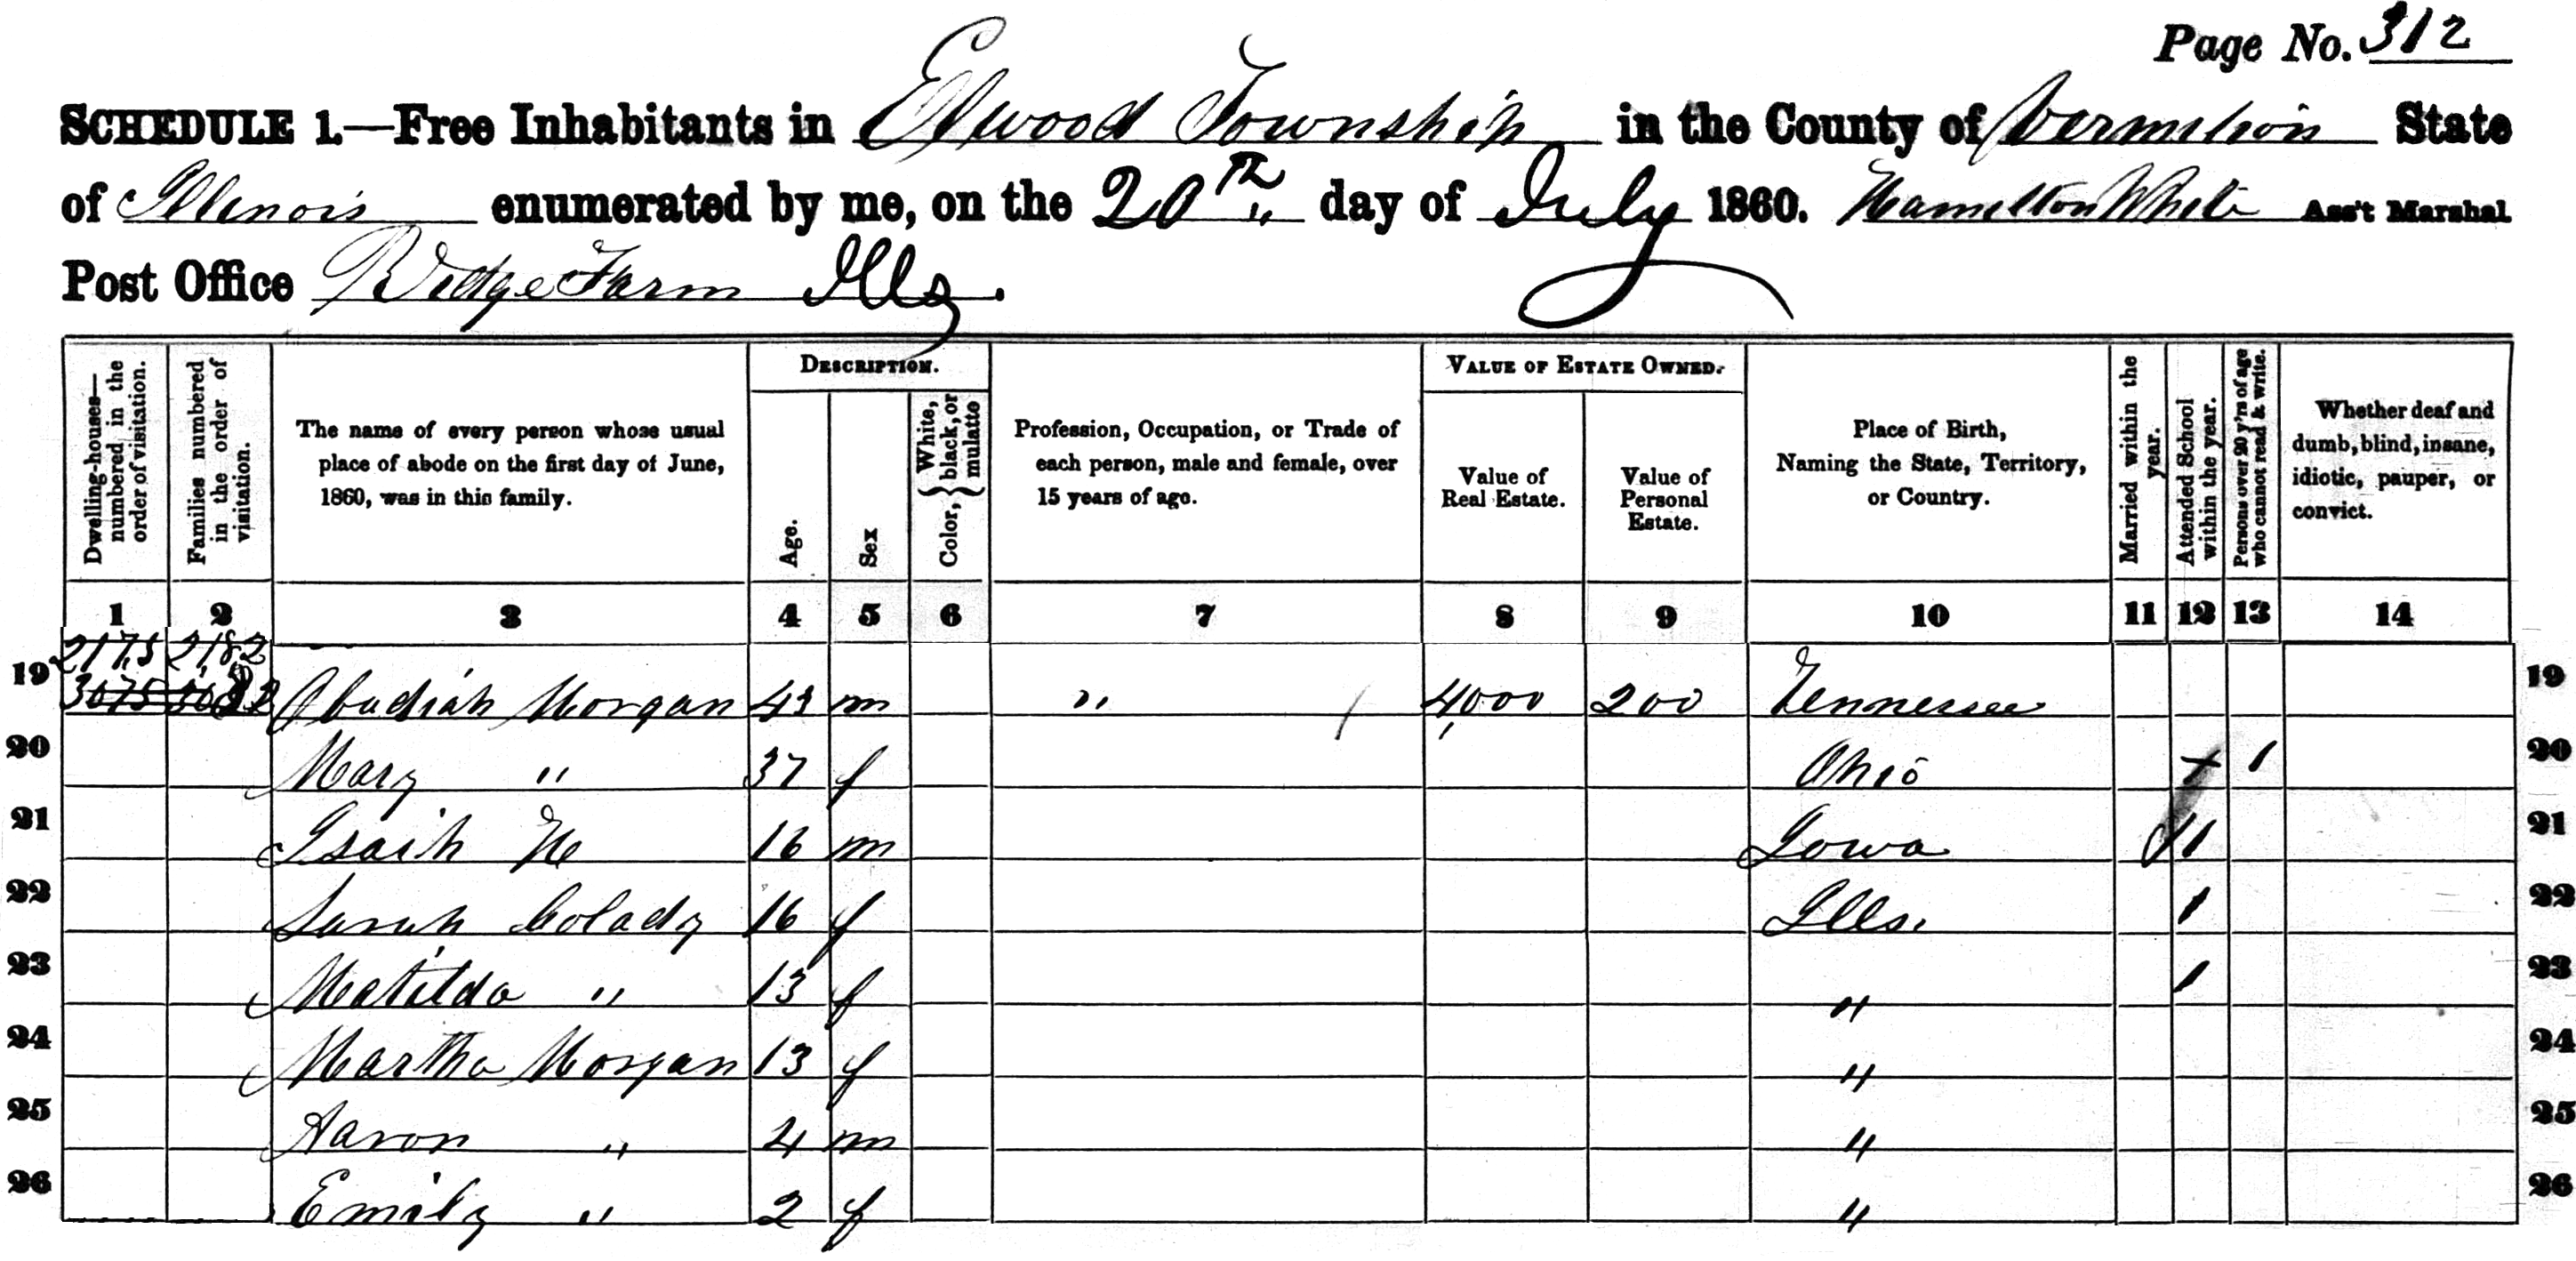 Page No. 312
SCHEDULE 1.—Free Inhabitants in Elwood Township in the County of Vermilion State
of Illinois enumerated by me, on the 20th day of July 1860. Hamilton White Ass't Marshal
Post Office Ridge Farm Ills.
DESCRIPTION. VALUE OF ESTATE OWNED.
Dwelling-houses—numbered in the order of visitation.
Families numbered in the order of visitation.
The name of every person whose usual place of abode on the first day of June, 1860, was in this family.
Age.
Sex
Color, { White, black, or mulatto
Profession, Occupation, or Trade of each person, male and female, over 15 years of age.
Value of Real Estate.
Value of Personal Estate.
Place of Birth, Naming the State, Territory, or Country.
Married within the year.
Attended School within the year.
Persons over 20 y'rs of age who cannot read & write.
Whether deaf and dumb, blind, insane, idiotic, pauper, or convict.
1 2 3 4 5 6 7 8 9 10 11 12 13 14
2175 2182
19 3075 Obadiah Morgan 43 m " / 4,000 200 Tennessee 19
20 Mary " 37 f Ohio 1 20
21 Isaih H 16 m Iowa 1 21
22 Sarah Colady 16 f Ills. 1 22
23 Matilda " 13 f " 1 23
24 Martha Morgan 13 f " 24
25 Aaron " 4 m " 25
26 Emily " 2 f " 26